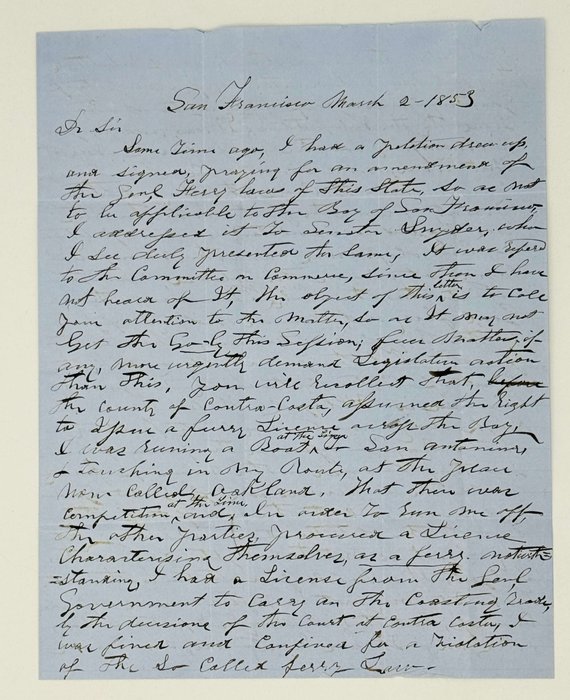 San Francisco March 2 - 1853
Dr Sir
Some time ago, I had a petition drawn up,
and signed, praying for an amendment of
the Genl Ferry laws of this State, so as not
to be applicable to the Bay of San Francisco,
I addressed it to Senator Snyder, who
I see duly presented the same, It was referd
to the Committee on Commerce, since then I have
not heard of It, the object of this letter is to Call
your attention to the Matter, so as It may not
Get the Go-by this Session; few Matters, if
any, More urgently demand Legislative action
than this, You will Recollect that,
the County of Contra-Costa, assumed the Right
to Issue a ferry License across the Bay,
I was Runing a Boat, at the time to San antonio,
& touching in My Route, at the place
Now Called Oakland. That there was
Competition at the time, and, In order to Run me off,
the other parties, procured a License
Characterising themselves, as a ferry. notwith=
=standing, I had a License from the Genl
Government to Carry on the Coasting Trade,
by the decisions of the Court at Contra Costa, I
was fined and Confined for a Violation
of the So Called ferry Law.